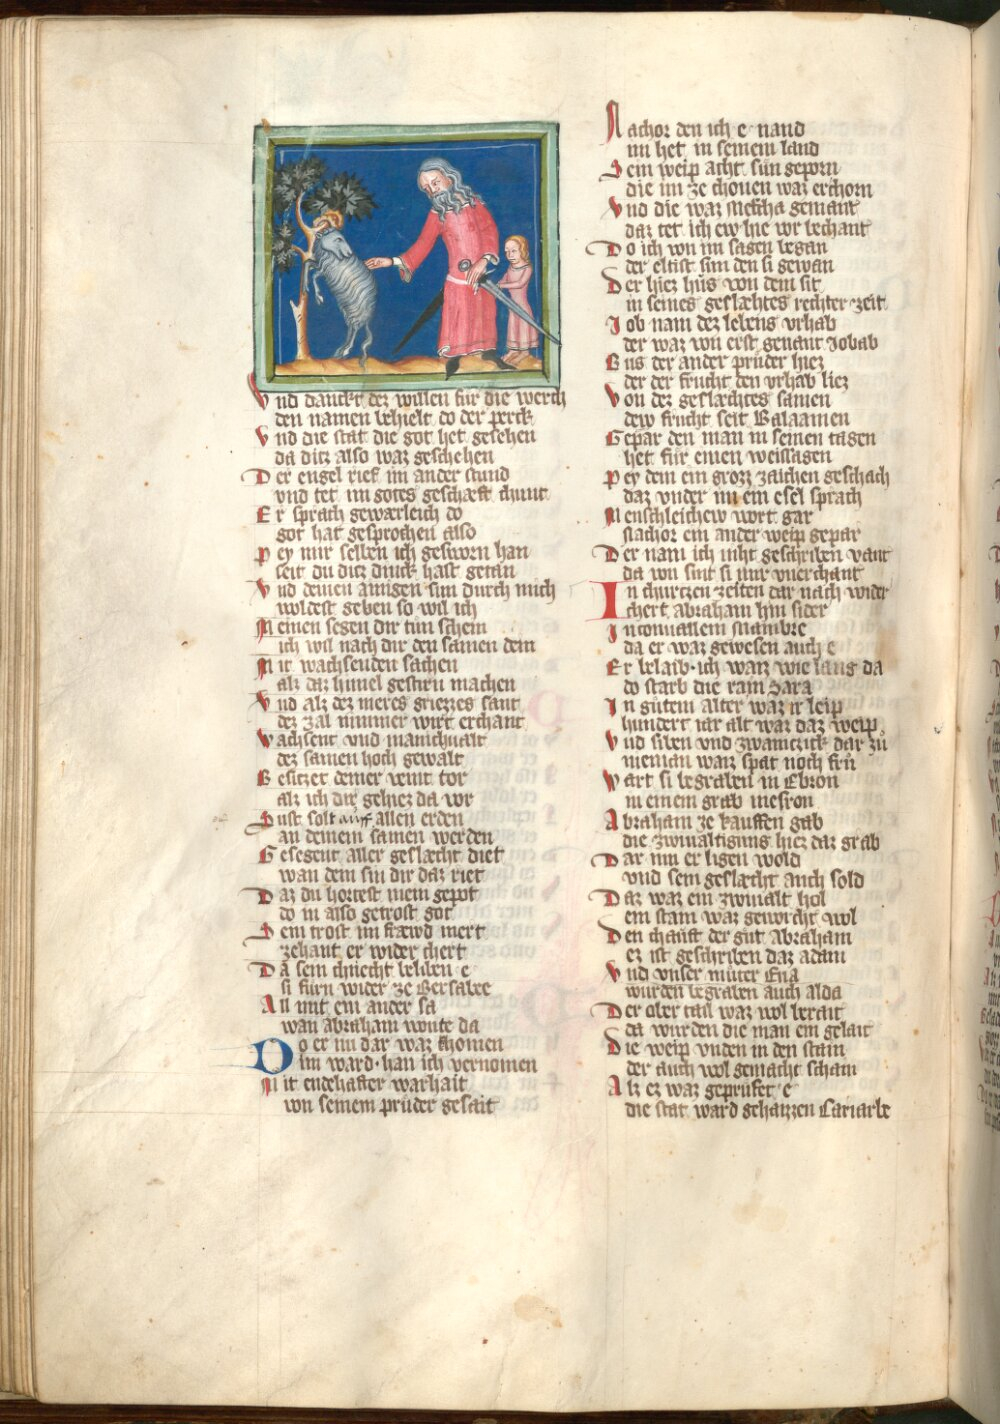 Vnd dancht dez willen für die werch
den namen behielt do der perck
Vnd die stat die got het gesehen
da ditz also waz geschehen
Der engel rief im ander stund
vnd tet im gotes geschæft chunt
Er sprach gewærleich do
got hat gesprochen also
Pey mir selben ich gesworn han
seit du ditz dinck hast getan
Vnd deinen ainigen sun durch mich
woldest geben so wil ich
Meinen segen dir tun schein
ich wil nach dir den samen dein
Mit wachsenden sachen
alz daz himel gestirn machen
Vnd alz dez meres griezzes sant
dez zal nimmer wirt erchant
Wachsent vnd manichualt
dez samen hoch gewalt
Besitzet deiner veint tor
alz ich dir gehiez da vor
Sust solt auff allen erden
an deinem samen werden
Gesegent aller geslæcht diet
wan dem sin dir daz riet
Daz du hortest mein gepot
do in also getrost got
Sein trost im fræwd mert
zehant er wider chert
Da sein chnecht beliben e
si fürn wider ze Bersabee
All mit ein ander sa
wan abraham wonte da
Do er nu dar waz chomen
im ward · han ich vernomen
Mit endehafter warhait
von seinem prüder gesait
Nachor den ich e nand
im het in seinem land
Sein weip acht sün geporn
die im ze chonen waz erchorn
Vnd die waz melcha genant
daz tet ich ew hie vor bechant
Do ich von im sagen began
der eltist sun den si gewan
Der hiez hüs von dem sit
in seines geslæhtes rechter zeit
Job nam dez lebens vrhab
der waz von erst genant Jobab
Bus der ander prüder hiez
der der frucht den vrhab liez
Von dez geslæchtes samen
dew frucht seit Balaamen
Gepar den man in seinen tagen
het für einen weissagen
Pey dem ein grozz zaichen geschach
daz vnder im ein esel sprach
Menschleichew wort gar
Nachor ein ander weip gepar
Der nam ich niht geschriben vant
da von sint si mir vnerchant
In churtzen zeiten dar nach wider
chert abraham hin sider
In conuallem Mambre
da er waz gewesen auch e
Er belaib · ich waiz wie lang da
do starb die rain Sara
In gütem alter waz ir leip
hundert iar alt waz daz weip
Vnd siben vnd zwaintzick dar zü
nieman waiz spat noch frü
Wart si begraben in Ebron
in einem grab mesron
Abraham ze kauffen gab
die zwiualtigung hiez daz grab
Dar inn er ligen wold
vnd sein geslæcht auch sold
Daz waz ein zwiualt hol
ein stain waz geworcht wol
Den chauft der güt Abraham
ez ist geschriben daz adam
Vnd vnser müter Eua
wurden begraben auch alda
Der ober tail waz wol berait
da wurden die man ein gelait
Die weip vnden in den stain
der auch wol gemacht schain
Alz ez waz geprüfet e
die stat ward gehaizzen Cariarbe